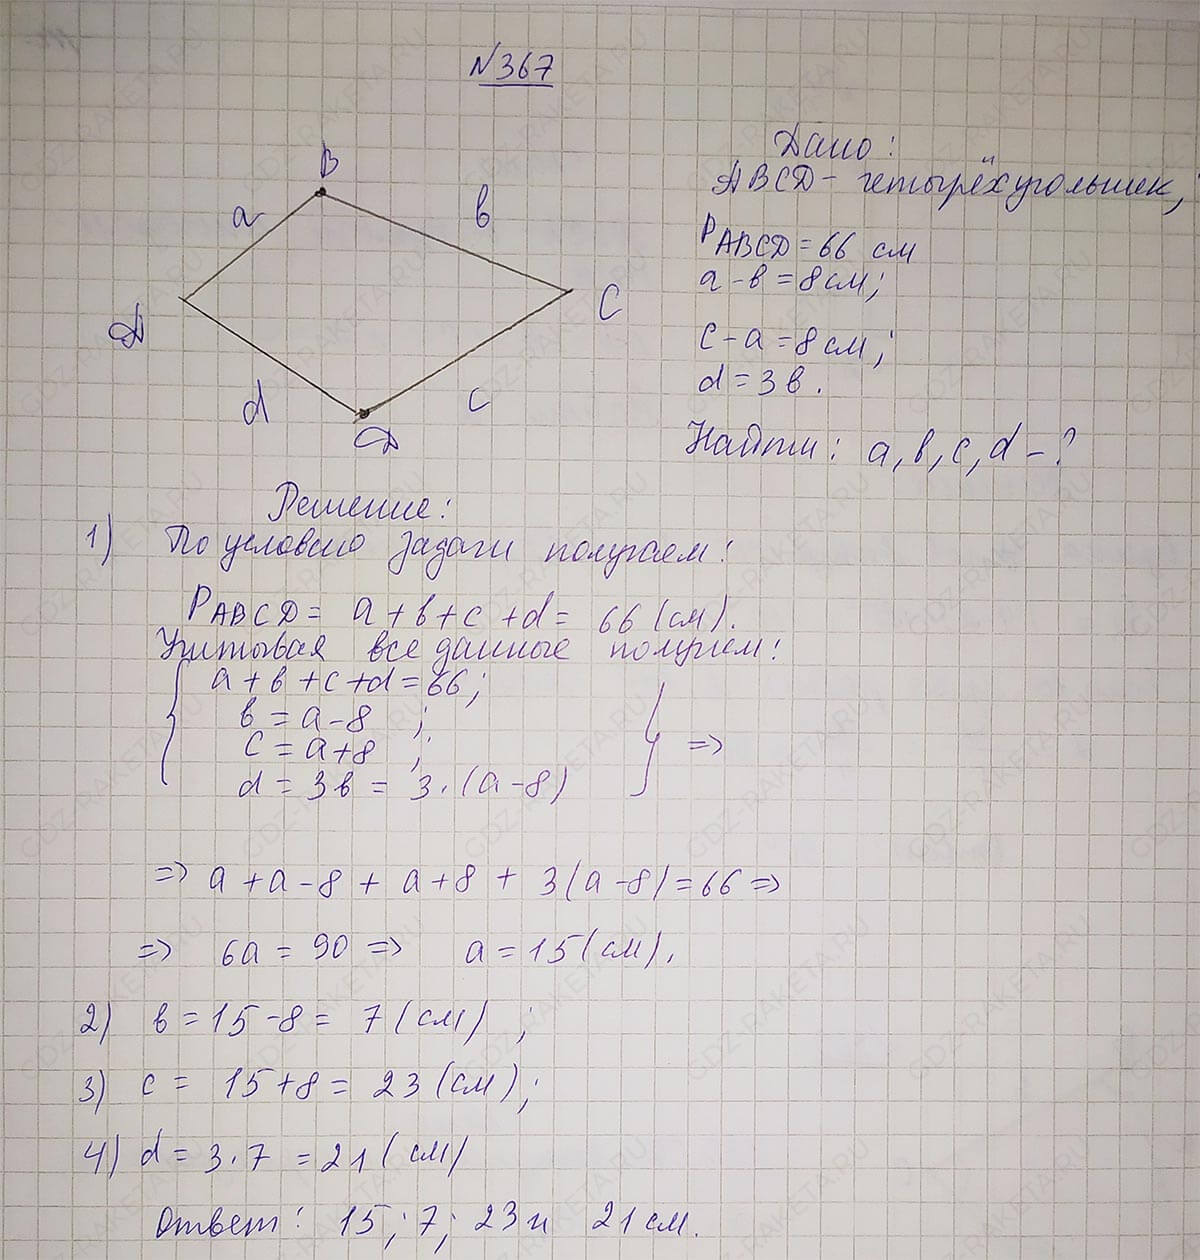 №367
B
a
в
C
A
d
c
D
Дано:
ABCD - четырёхугольник;
PABCD = 66 см
a - в = 8 см;
c - a = 8 см;
d = 3в.
Найти: a, в, c, d - ?
Решение:
1) По условию задачи получаем:
PABCD = a + в + c + d = 66 (см).
Учитывая все данные получим:
a + в + c + d = 66;
в = a - 8 ;
c = a + 8 ;
d = 3в = 3 · (a - 8)
=>
=> a + a - 8 + a + 8 + 3(a - 8) = 66 =>
=> 6a = 90 => a = 15 (см).
2) в = 15 - 8 = 7 (см) ;
3) c = 15 + 8 = 23 (см);
4) d = 3 · 7 = 21 (см)
Ответ: 15; 7; 23 и 21 см.
GDZ-RAKETA.RU